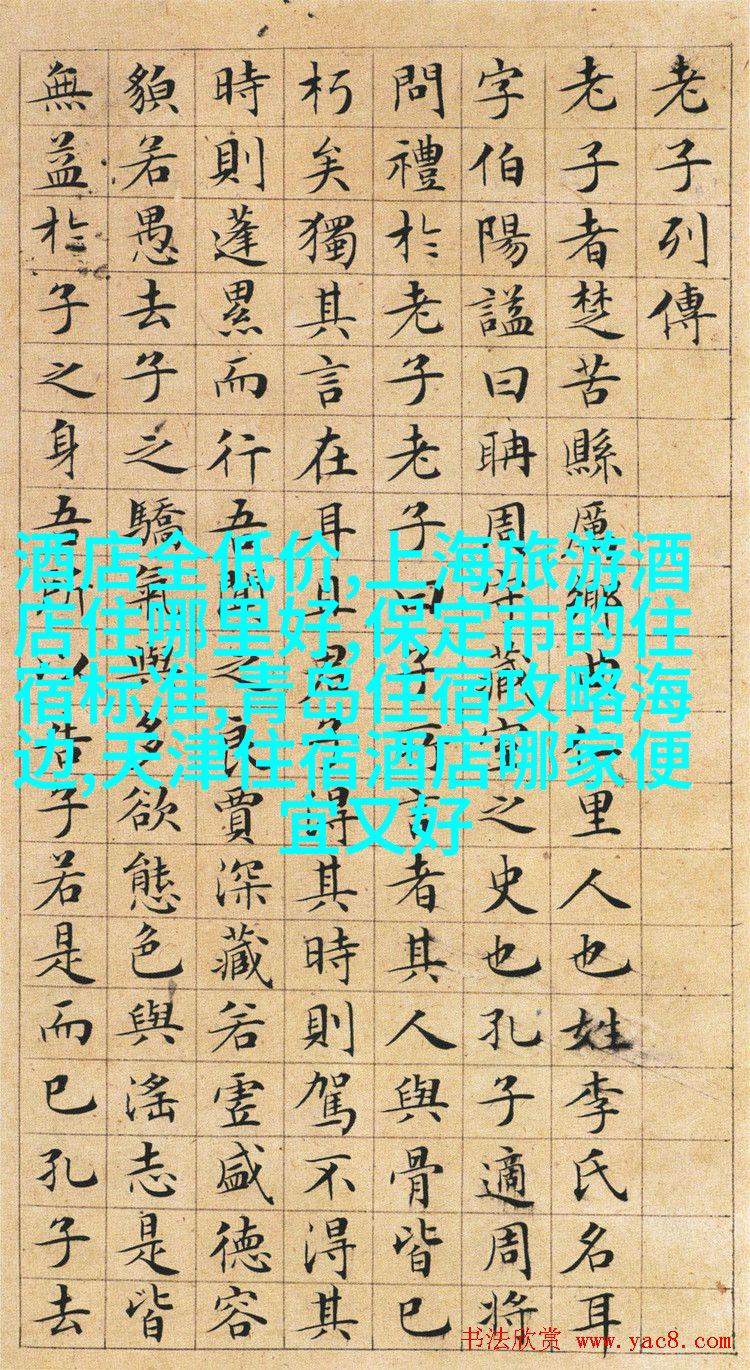 老子列傳
老子者楚苦縣厲鄉曲仁里人也姓李氏名耳
字伯陽謚曰聃周守藏室之史也孔子適周將
問禮於老子老子曰子所言者其人與骨皆已
朽矣獨其言在耳且君子得其時則駕不得其
時則蓬累而行吾聞之良賈深藏若虛盛德容
貌若愚去子之驕氣與多欲態色與淫志是皆
無益於子之身吾所以告子若是而已孔子去
酒店全低价,上海旅游酒
店住哪里好,保定市的住
宿标准,青岛住宿攻略海
边,天津住宿酒店哪家便
宜又好
书法欣赏 www.yac8.com